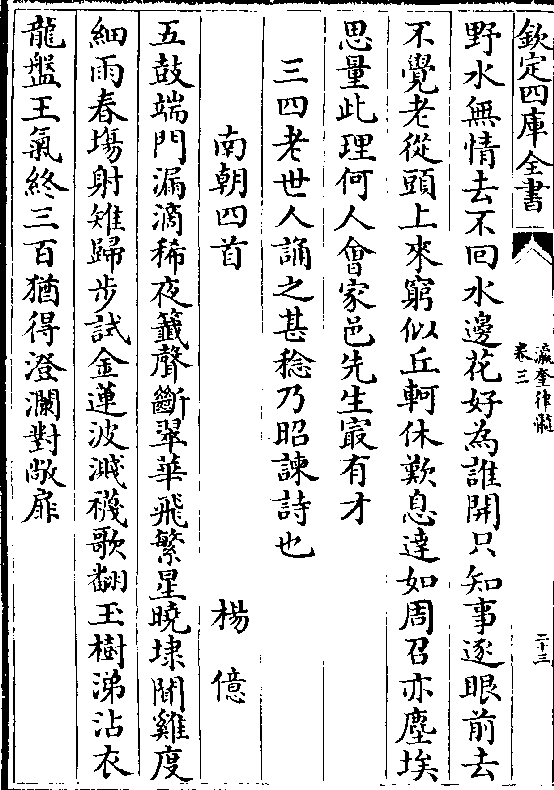 欽定四庫全書
瀛奎律髓
卷三
二十三
野水無情去不回水邊花好為誰開只知事逐眼前去
不覺老從頭上來窮似丘軻休歎息達如周召亦塵埃
思量此理何人會家邑先生㝡有才
三四老世人誦之甚稔乃昭諫詩也
南朝四首 楊億
五鼓端門漏滴稀夜籤聲斷翠華飛繁星曉埭聞雞度
細雨春場射雉歸步試金蓮波濺襪歌翻玉樹涕沾衣
龍盤王氣終三百猶得澄瀾對敞扉